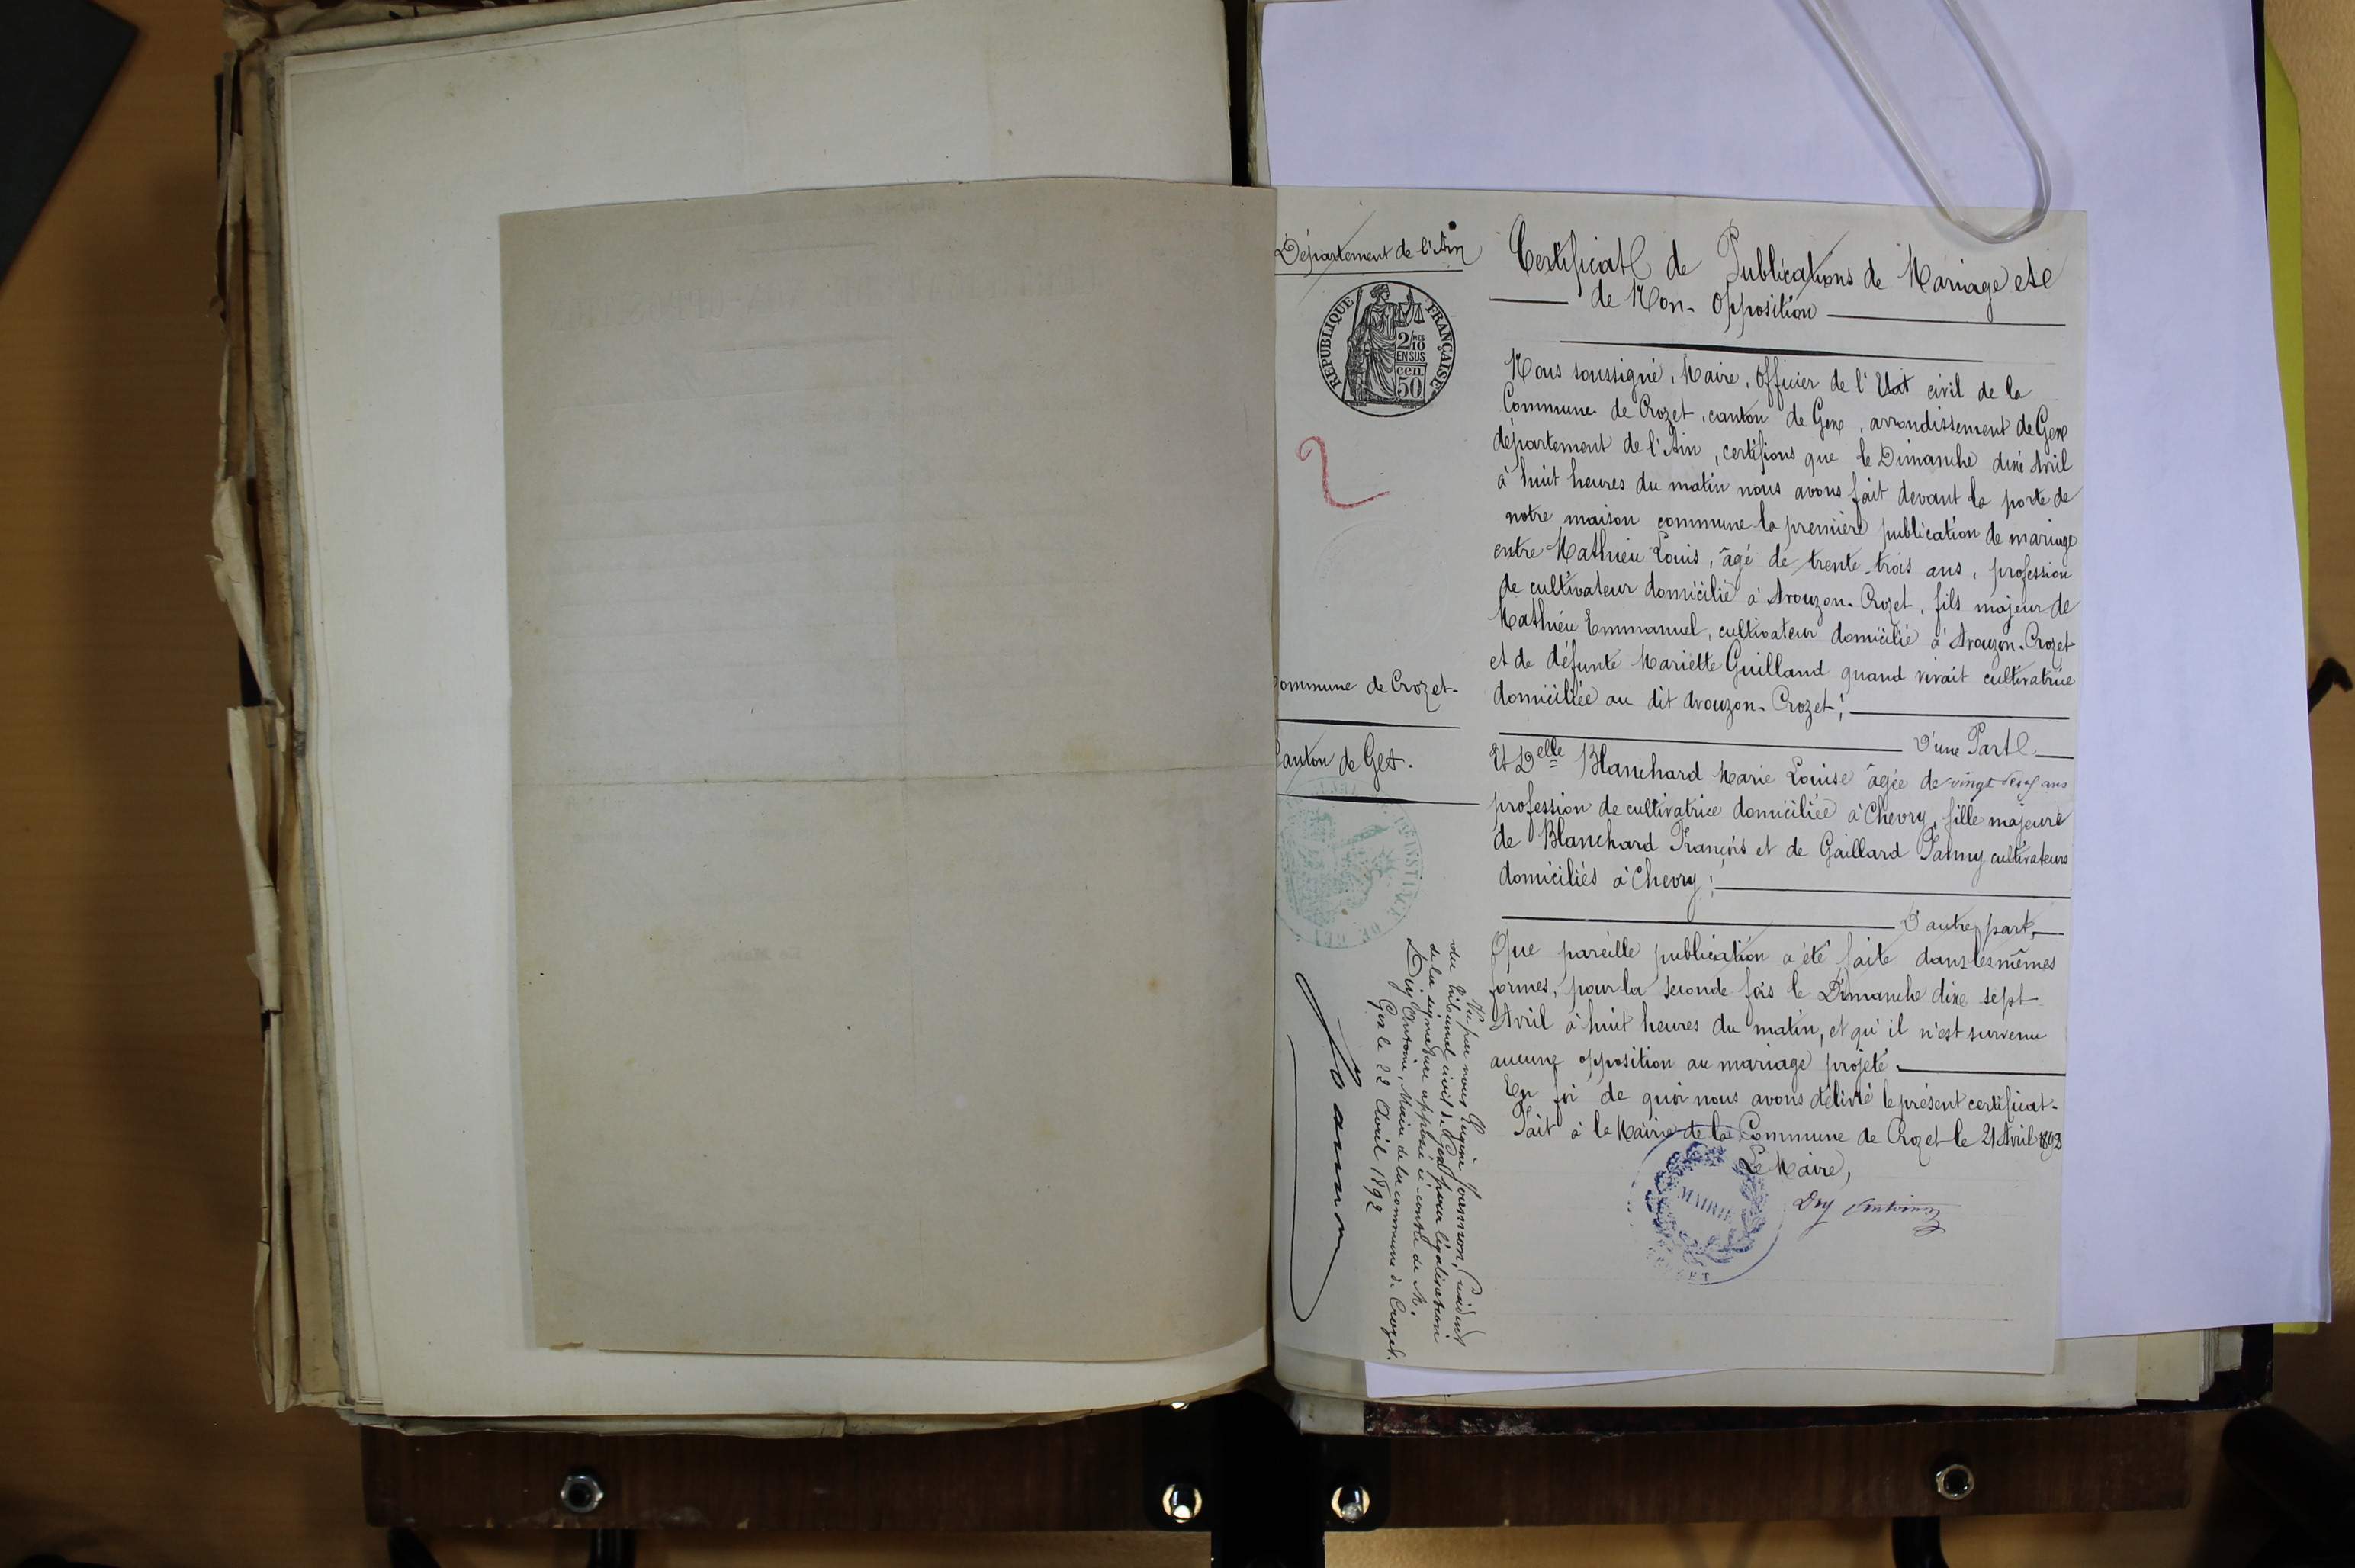 Département de l'Ain
REPUBLIQUE FRANÇAISE
2/10
EN SUS
50 cen
2
Commune de Crozet.
Canton de Gex.
Certificat de Publications de Mariage et
de Non-Opposition
Nous soussigné, Maire, Officier de l'Etat civil de la
Commune de Crozet, canton de Gex, arrondissement de Gex
département de l'Ain, certifions que le Dimanche dix Avril
à huit heures du matin nous avons fait devant la porte de
notre maison commune la première publication de mariage
entre Mathieu Louis, âgé de trente-trois ans, profession
de cultivateur domicilié à Avouzon-Crozet, fils majeur de
Mathieu Emmanuel, cultivateur domicilié à Avouzon-Crozet
et de défunte Mariette Guilland quand vivait cultivatrice
domiciliée au dit Avouzon-Crozet;
D'une Part
Et Delle Blanchard Marie Louise âgée de vingt ans
profession de cultivatrice domiciliée à Chevry, fille majeure
de Blanchard François et de Gaillard Fanny cultivateurs
domiciliés à Chevry;
D'autre part,
Que pareille publication a été faite dans les mêmes
formes, pour la seconde fois le Dimanche dix sept
Avril à huit heures du matin, et qu'il n'est survenu
aucune opposition au mariage projeté.
En foi de quoi nous avons délivré le présent certificat.
Fait à la Mairie de la Commune de Crozet le 21 Avril 1892
Le Maire,
Dry Antoine
MAIRIE
Vu par nous Eugène Président
du tribunal civil de Gex pour légalisation
de la signature apposée ci-contre de M.
Dry Antoine, Maire de la commune de Crozet.
Gex le 22 Avril 1892